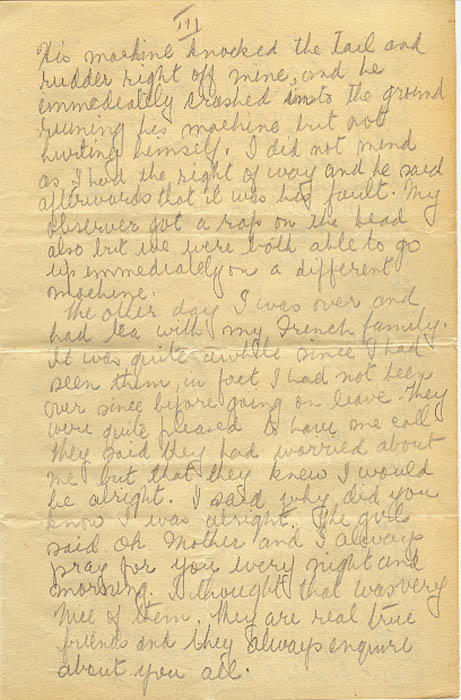 III
His machine knocked the tail and
rudder right off mine, and he
immediately crashed into the ground
ruining his machine but not
hurting himself. I did not mind
as I had the right of way and he said
afterwards that it was his fault. My
observer got a rap on the head
also but we were both able to go
up immediately on a different
machine.
The other day I was over and
had tea with my French family.
It was quite awhile since I had
seen them, in fact I had not been
over since before going on leave. They
were quite pleased to have me call
They said they had worried about
me but that they knew I would
be alright. I said why did you
know I was alright. The girls
said Oh Mother and I always
pray for you every night and
morning. I thought that was very
nice of them. They are real true
friends and they always enquire
about you all.